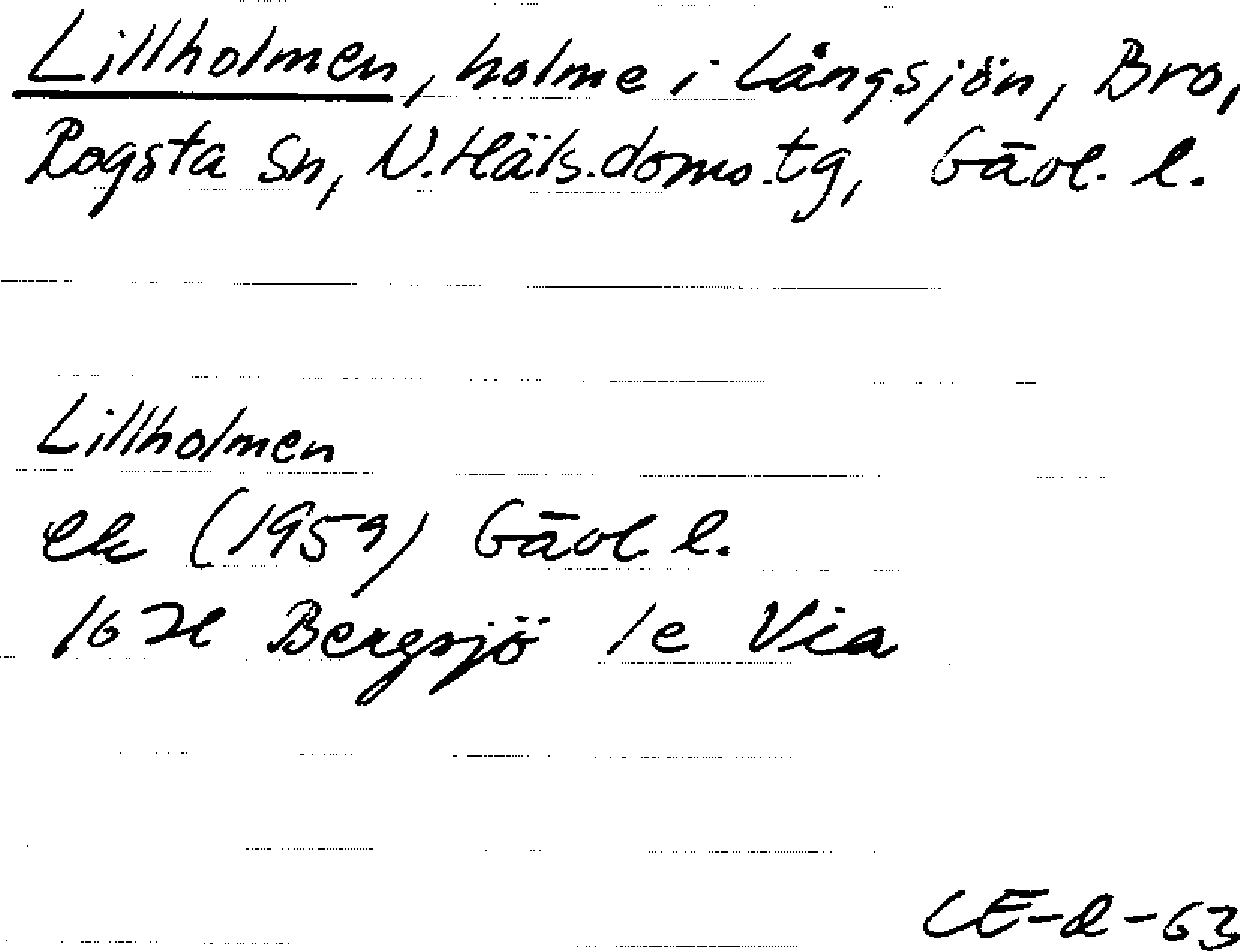 Lillholmen, holme i Långsjön, Bro,
Rogsta Sn, N. Häls. doms. tg, Gävl. l.
Lillholmen
ek (1959) Gävl. l.
16 H Bergsjö 1e Via
CE-R-63